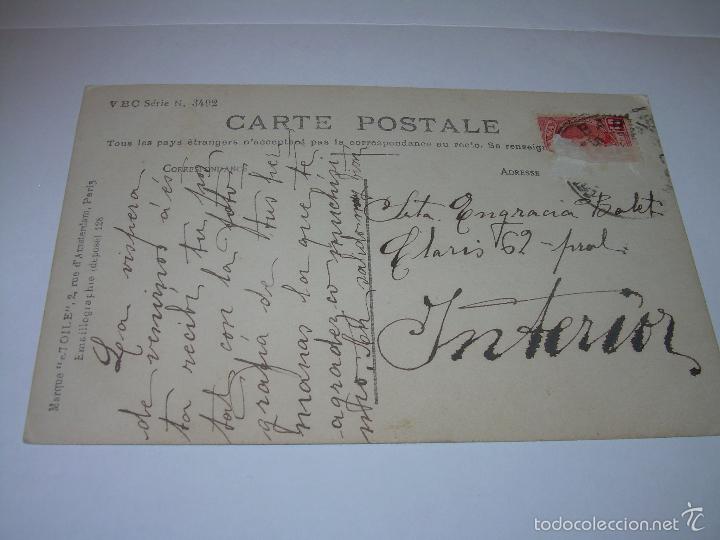 VBC Série N. 3492
CARTE POSTALE
Tous les pays étrangers n'acceptent pas la correspondance au recto. Se renseign
CORRESPONDANCE
ADRESSE
Marque "eTOILE", 2, rue d'Amsterdam, Paris
Emaillographie (déposé) 128
La vispera
de venirnos á és
ta recibi tu pos
tal con la foto
grafia de tus her
manas la que te
agradezco muchisi
mo.
salido muy bien
Srta Engracia Bolet
Claris 62-pral.
Interior
todocoleccion.net